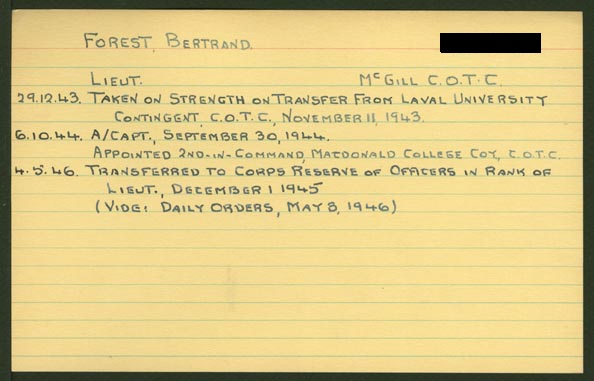 FOREST, BERTRAND.
LIEUT. McGILL C.O.T.C.
29.12.43. TAKEN ON STRENGTH ON TRANSFER FROM LAVAL UNIVERSITY
CONTINGENT, C.O.T.C., NOVEMBER 11, 1943.
6.10.44. A/CAPT., SEPTEMBER 30, 1944.
APPOINTED 2ND-IN-COMMAND, MACDONALD COLLEGE COY, C.O.T.C.
4.5.46. TRANSFERRED TO CORPS RESERVE OF OFFICERS IN RANK OF
LIEUT., DECEMBER 1 1945
(VIDE: DAILY ORDERS, MAY 8, 1946)